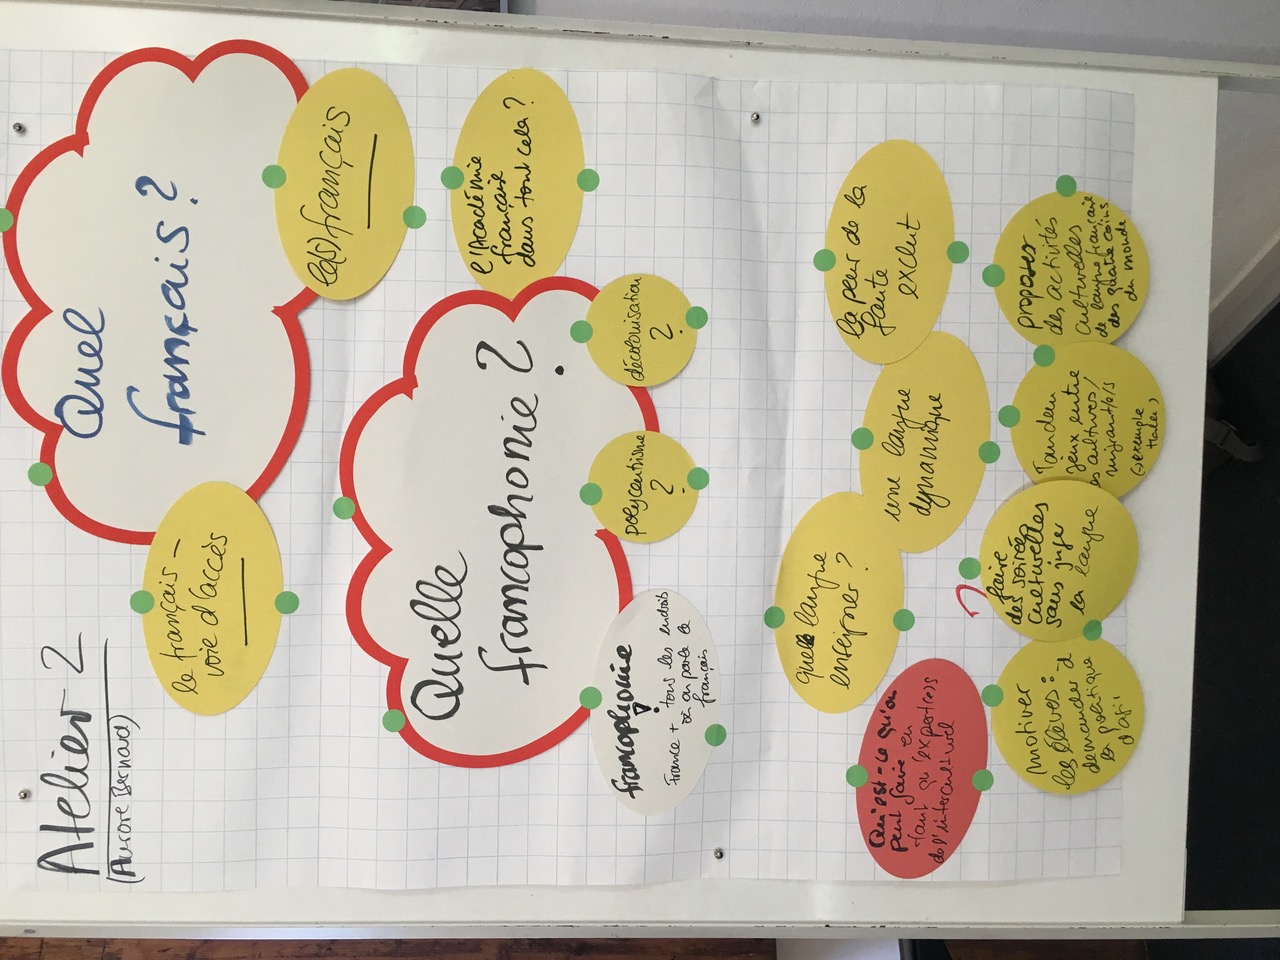 Atelier 2
(Aurore Bernad)
Quel
français ?
le français –
voie d'accès
le(s) français
l'Académie
française
dans tout cela ?
Quelle
francophonie ?
décolonisation
?
polycentrisme
?
francophonie
France + tous les endroits
où on parle le
français
la peur de la
faute
exclut
une langue
dynamique
quelle langue
enseigner ?
Qu'est-ce qu'on
peut faire en
tant qu'expert(e)s
de l'interculturel
?
proposer
des activités
culturelles
de langue française
des quatre coins
du monde
Tandem
jeux entre
cultures/
migrant/e/s
faire
des soirées
culturelles
sans juger
la langue
motiver
les élèves :
demander à
la politique
d'agi